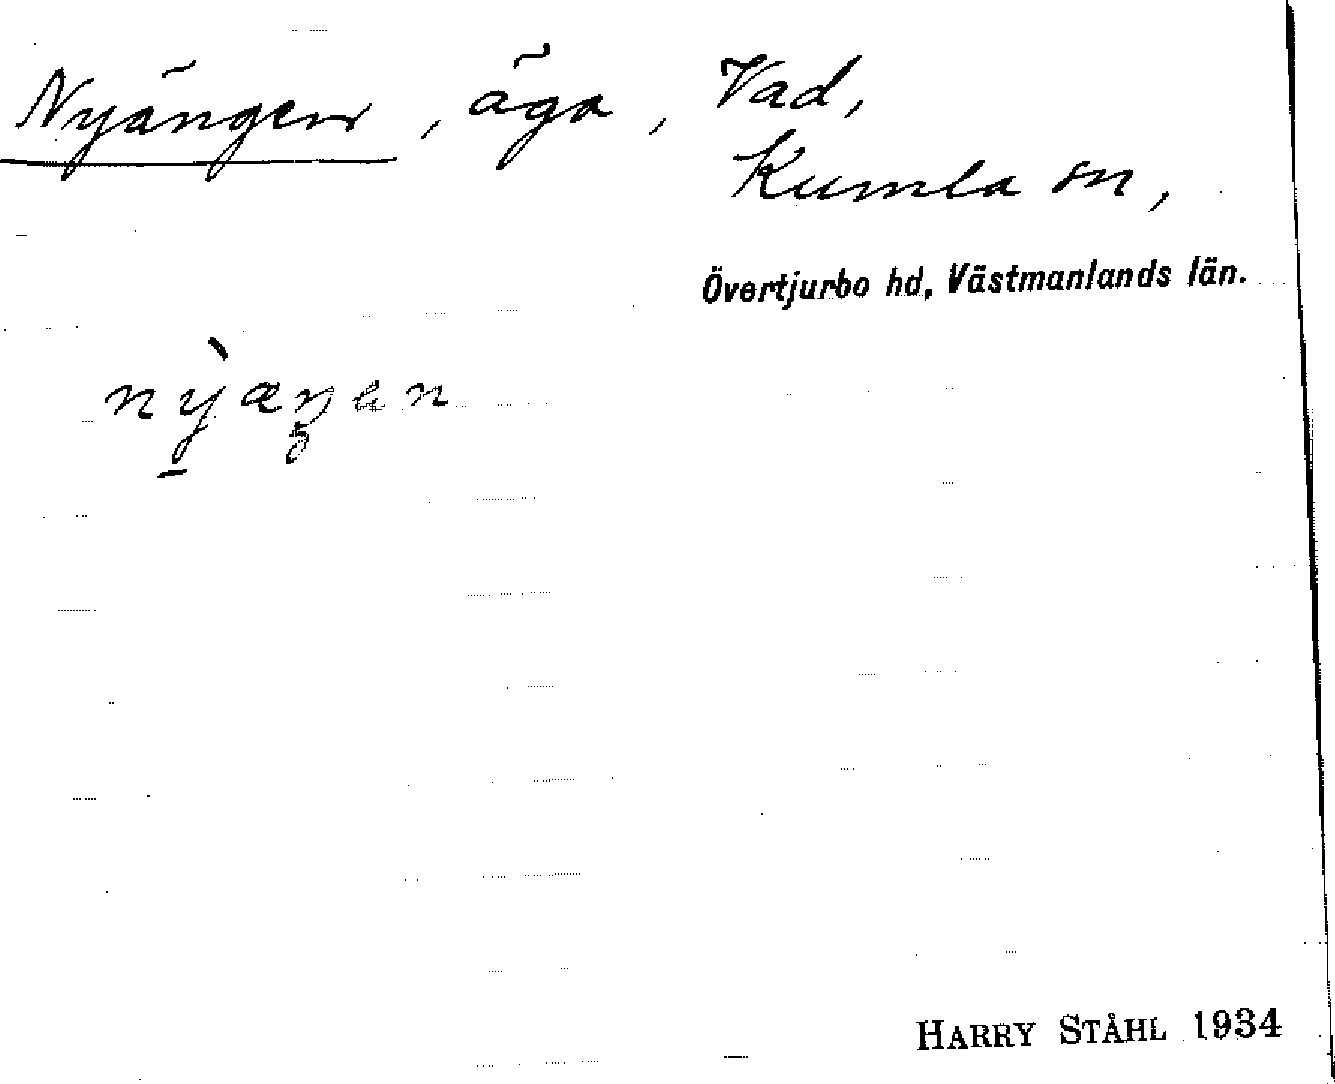 Nyängen, äga, Vad,
Kumla sn,
Övertjurbo hd, Västmanlands län.
HARRY STÅHL 1934